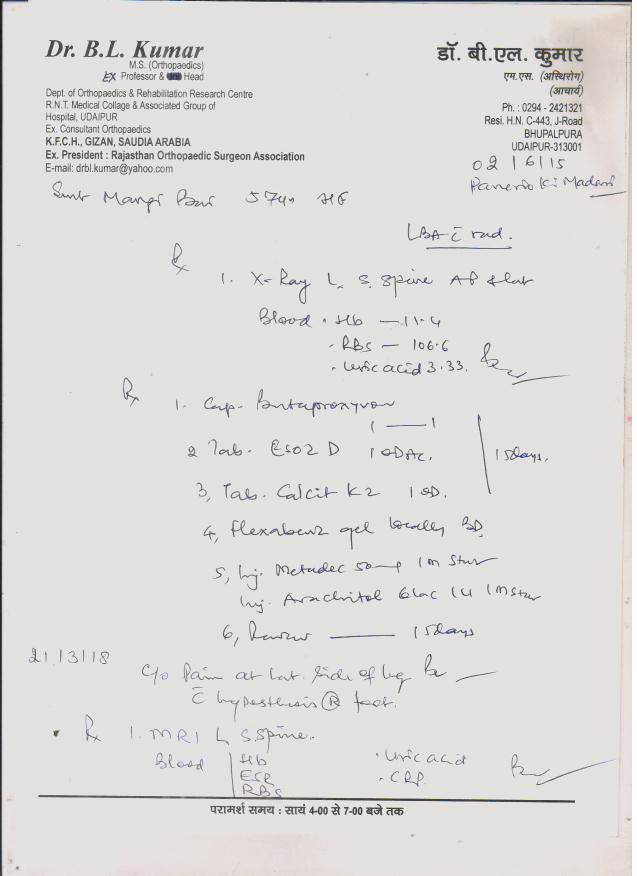 Dr. B.L. Kumar
M.S. (Orthopaedics)
Ex Professor & Head
Dept. of Orthopaedics & Rehabilitation Research Centre
R.N.T. Medical Collage & Associated Group of
Hospital, UDAIPUR
Ex. Consultant Orthopaedics
K.F.C.H., GIZAN, SAUDIA ARABIA
Ex. President : Rajasthan Orthopaedic Surgeon Association
E-mail: drbl.kumar@yahoo.com
डॉ. बी.एल. कुमार
एम.एस. (अस्थिरोग)
(आचार्य)
Ph. : 0294 - 2421321
Resi. H.N. C-443, J-Road
BHUPALPURA
UDAIPUR-313001
02/6/15
Smt Mangi Bai 57yr
LBA c rad.
Rx
1. X-Ray L. S. Spine AP & Lat
Blood . Hb — 11.4
. RBS — 106.6
. Uric acid 3.33.
Rx 1. Cap. Butaproxyvon
1 — 1
2 Tab. Eso2 D 1 OD AC.
15days.
3, Tab. Calcit K2 1 OD.
4, Flexabenz gel locally BD,
5, Inj. Metadec 50mg IM Stat
Inj. Arachitol 6lac IU IM Stat
6, Review — 15days
21/3/18
c/o Pain at Lat. Side of leg
c hypesthesis (R) foot.
Rx 1. MRI L S Spine.
Blood Hb . Uric acid
ESR . CRP.
RBS
परामर्श समय : सायं 4-00 से 7-00 बजे तक